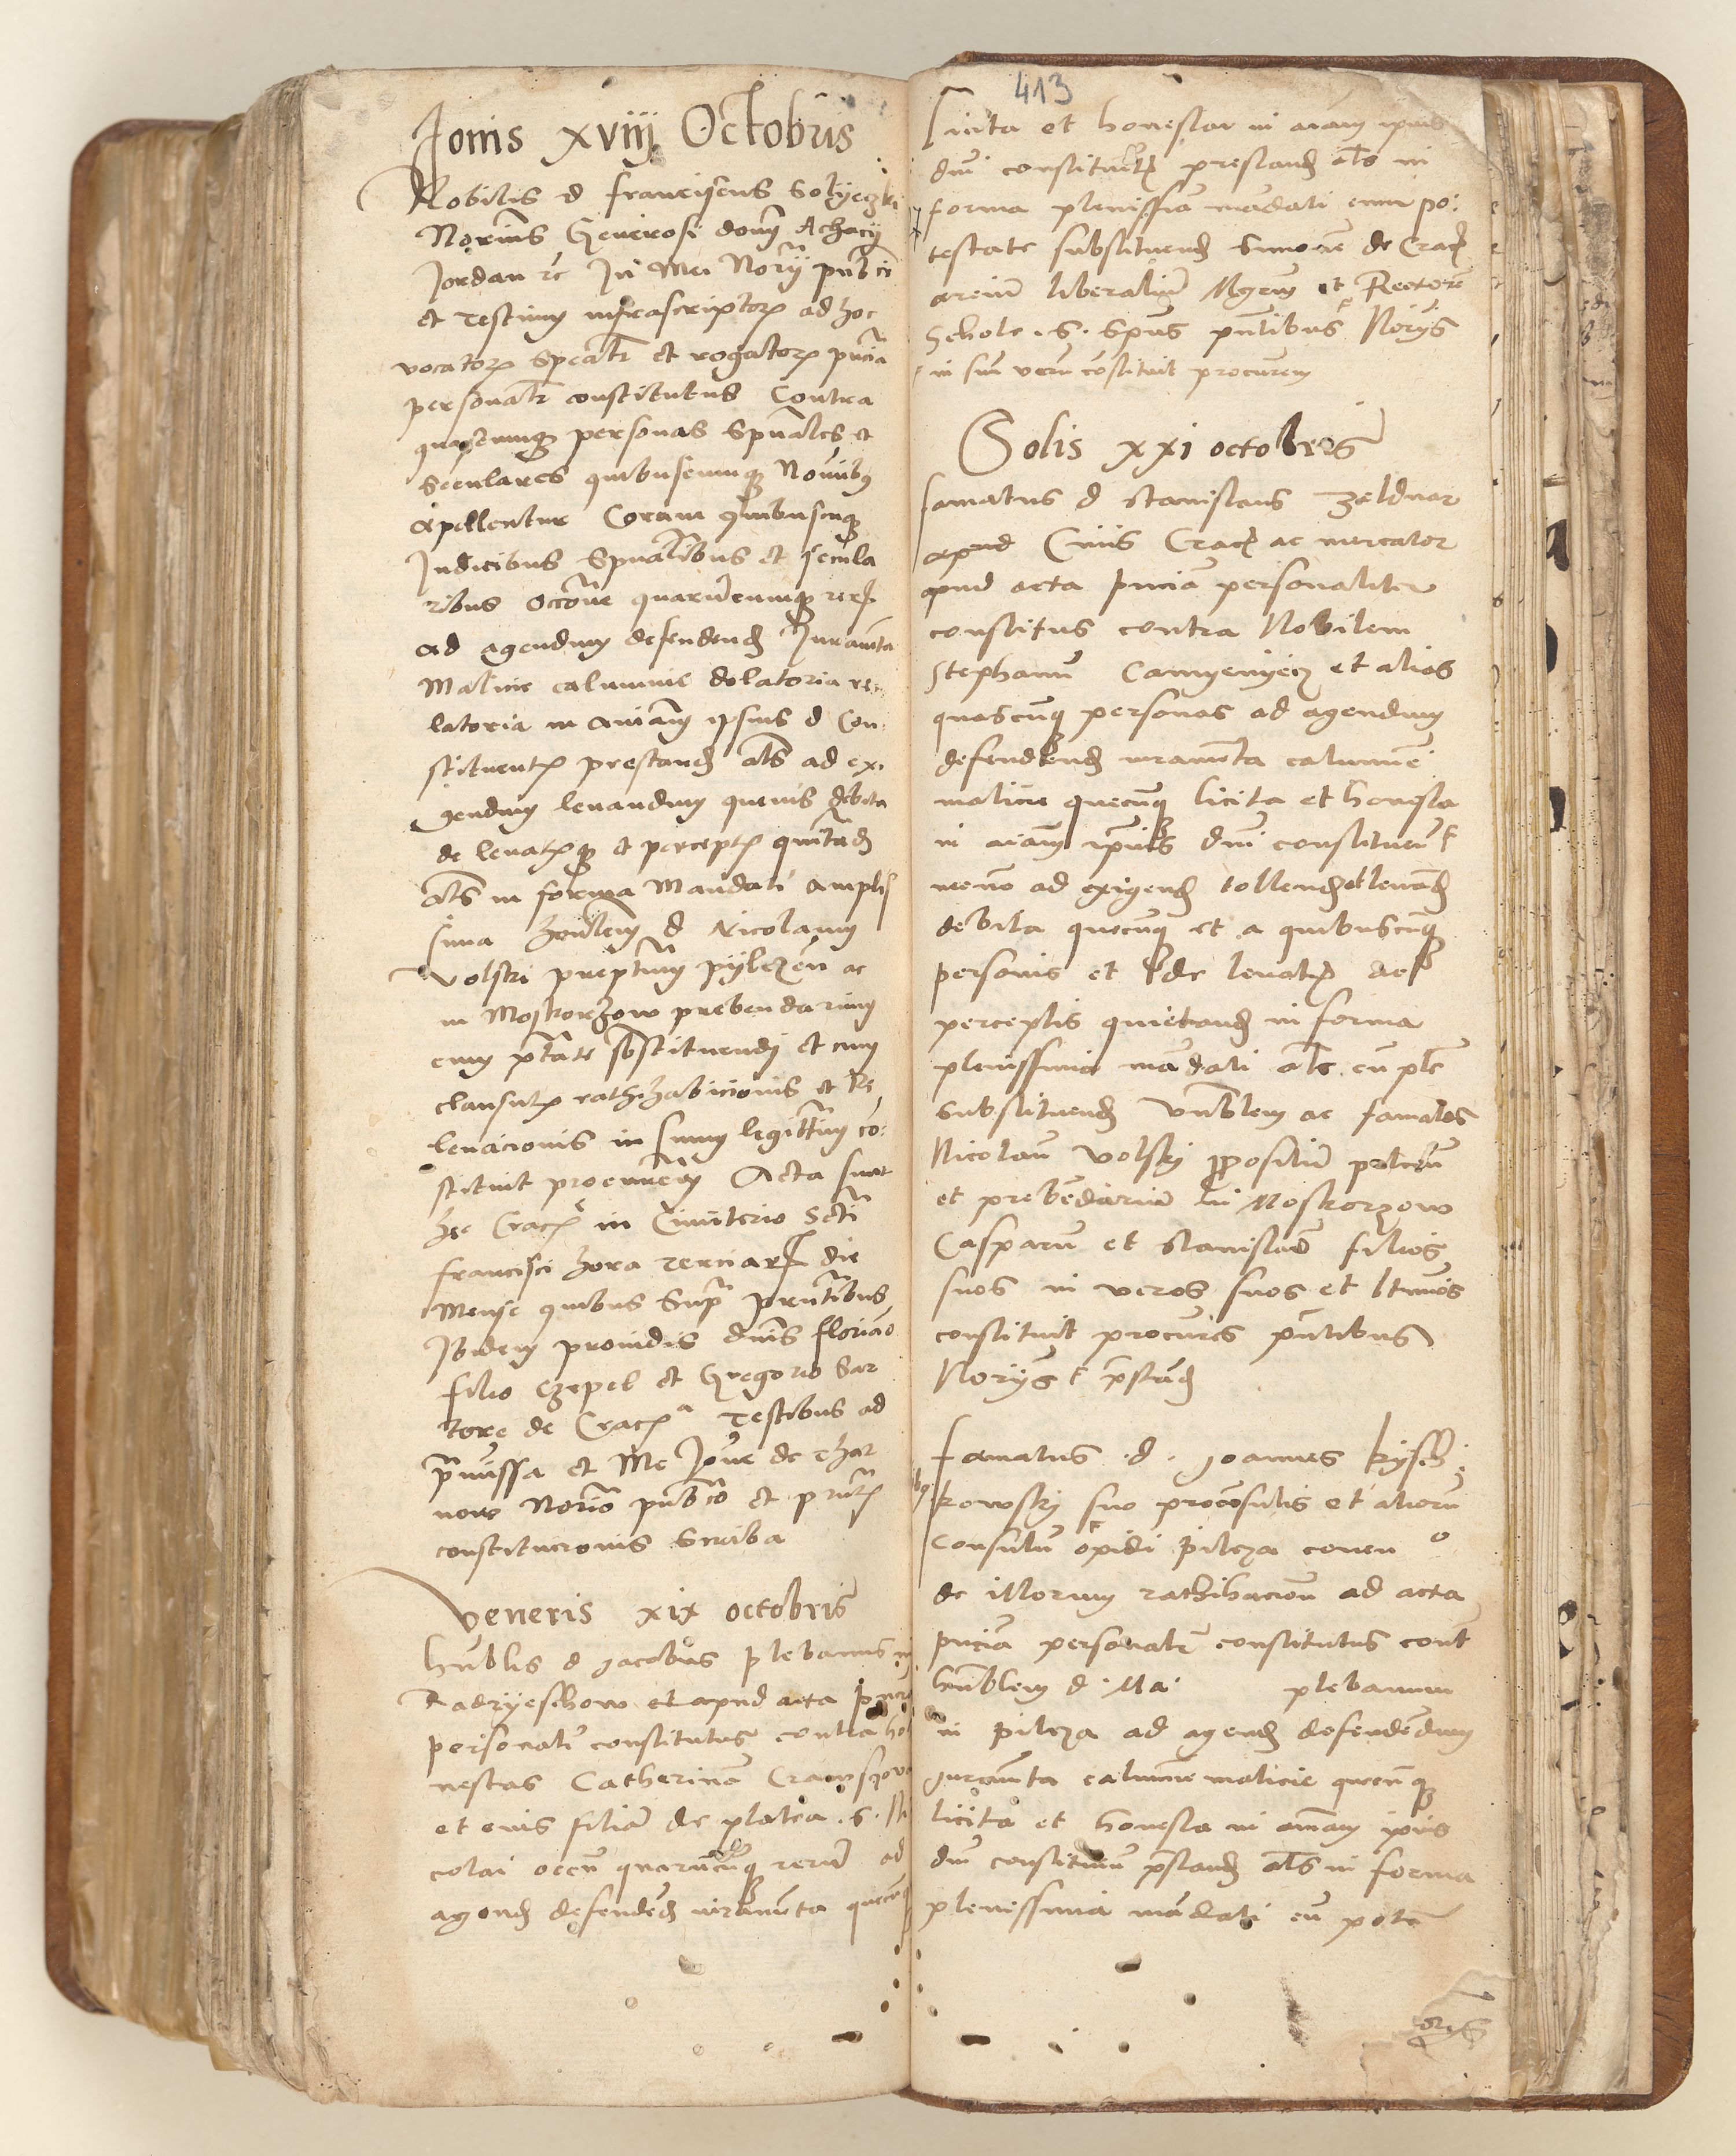 Jovis xviij Octobris
Nobilis d franciscus Solyeczki
Norius Generosi domi Achacij
Jordan rc In Mei Norij publci
et Testium infrascriptorum ad hoc
vocatorum spealtr et rogatorum pncia
personaltr constitutus Contra
quascumque personas spuales et
seculares quibuscumque Nominibus
apellentur Coram quibuscunque
Judicibus Spualibus et secula
ribus occone quarumcumque rerum
ad agendum defendend Juramenta
Malicie calumnie delatoria re
latoria in animam ipsius d Con
stituentis prestand als ad exi
gendum levandum quevis debita
de levatisque et perceptis quitand
als in forma Mandati amplis
sima honlem d Nicolaum
Volski prepitum pylczen ac
in Moskorzow prebendarium
cum ptate sbstituendi et cum
clausulis rathihabicionis et Re
levacionis in suum legittimum co:
stituit procuratorem Acta sunt
hec Crace in Cimiterio Scti
francisci hora terciarum die
Mense quibus supra prntibus
Ibidem providis dnis floriano
filio czepel et Gregorio sar
tore de Crac a Testibus ad
pmissa et Me Jone de Char
now Norio publco et pntis
constitucionis scriba
Veneris xix octobris
hnblis d Jacobus plebanus in
Radzyeschow et apud acta pncia
personaltr constitutus contra ho
nestas Catherinam
et eius filiam de platea .s. Ni
colai occne quarumcunque rerum ad
agend defendend iuramenta quecunque
413
licita et honesta in aiam ipius
dni constituentis prestand als in
forma plenissima mandati cum po:
testate substituend Simone de Crac
arcium liberalium Mgrum et Rectore
Schole .S. Spus pntibus Norijs
in sum verum constituit procurem
Solis xxi octobris
famatus d stanislaus Zeldnar
apud Civis Crac ac mercator
apud acta pncia personaliter
constitus contra Nobilem
Stephanum Camyenyecz et alias
quascunque personas ad agendum
defendend iuramenta calumnie
malicie quecunque licita et honesta
in aiam ipius dni constituent
necno ad exigend tollend et levand
debita quecunque et a quibuscunque
personis et de levatis ac
perceptis quietand in forma
plenissima mandati als cum ple
substituend Vnblem ac famatos
Nicolaum Volsky prpositum pelicen
et prebendarium in Moskorzow
Casparum et stanislaum filios
suos in veros suos et ltimos
constituit procures pntibus
Norijs t pstand
famatus .d. Joannes kysch
kowsky suo proconsulis et aliorum
Consulum opidi pilcza coven o
de illorum rathihacion ad acta
pncia personaltr constitutus cont
hnblem d . Ma . plebanum
in pilcza ad agend defendendum
Juramenta calumnie malicie quecunque
licita et honesta in animam ipius
dni constituen pstand als in forma
plenissima mandati cum pote